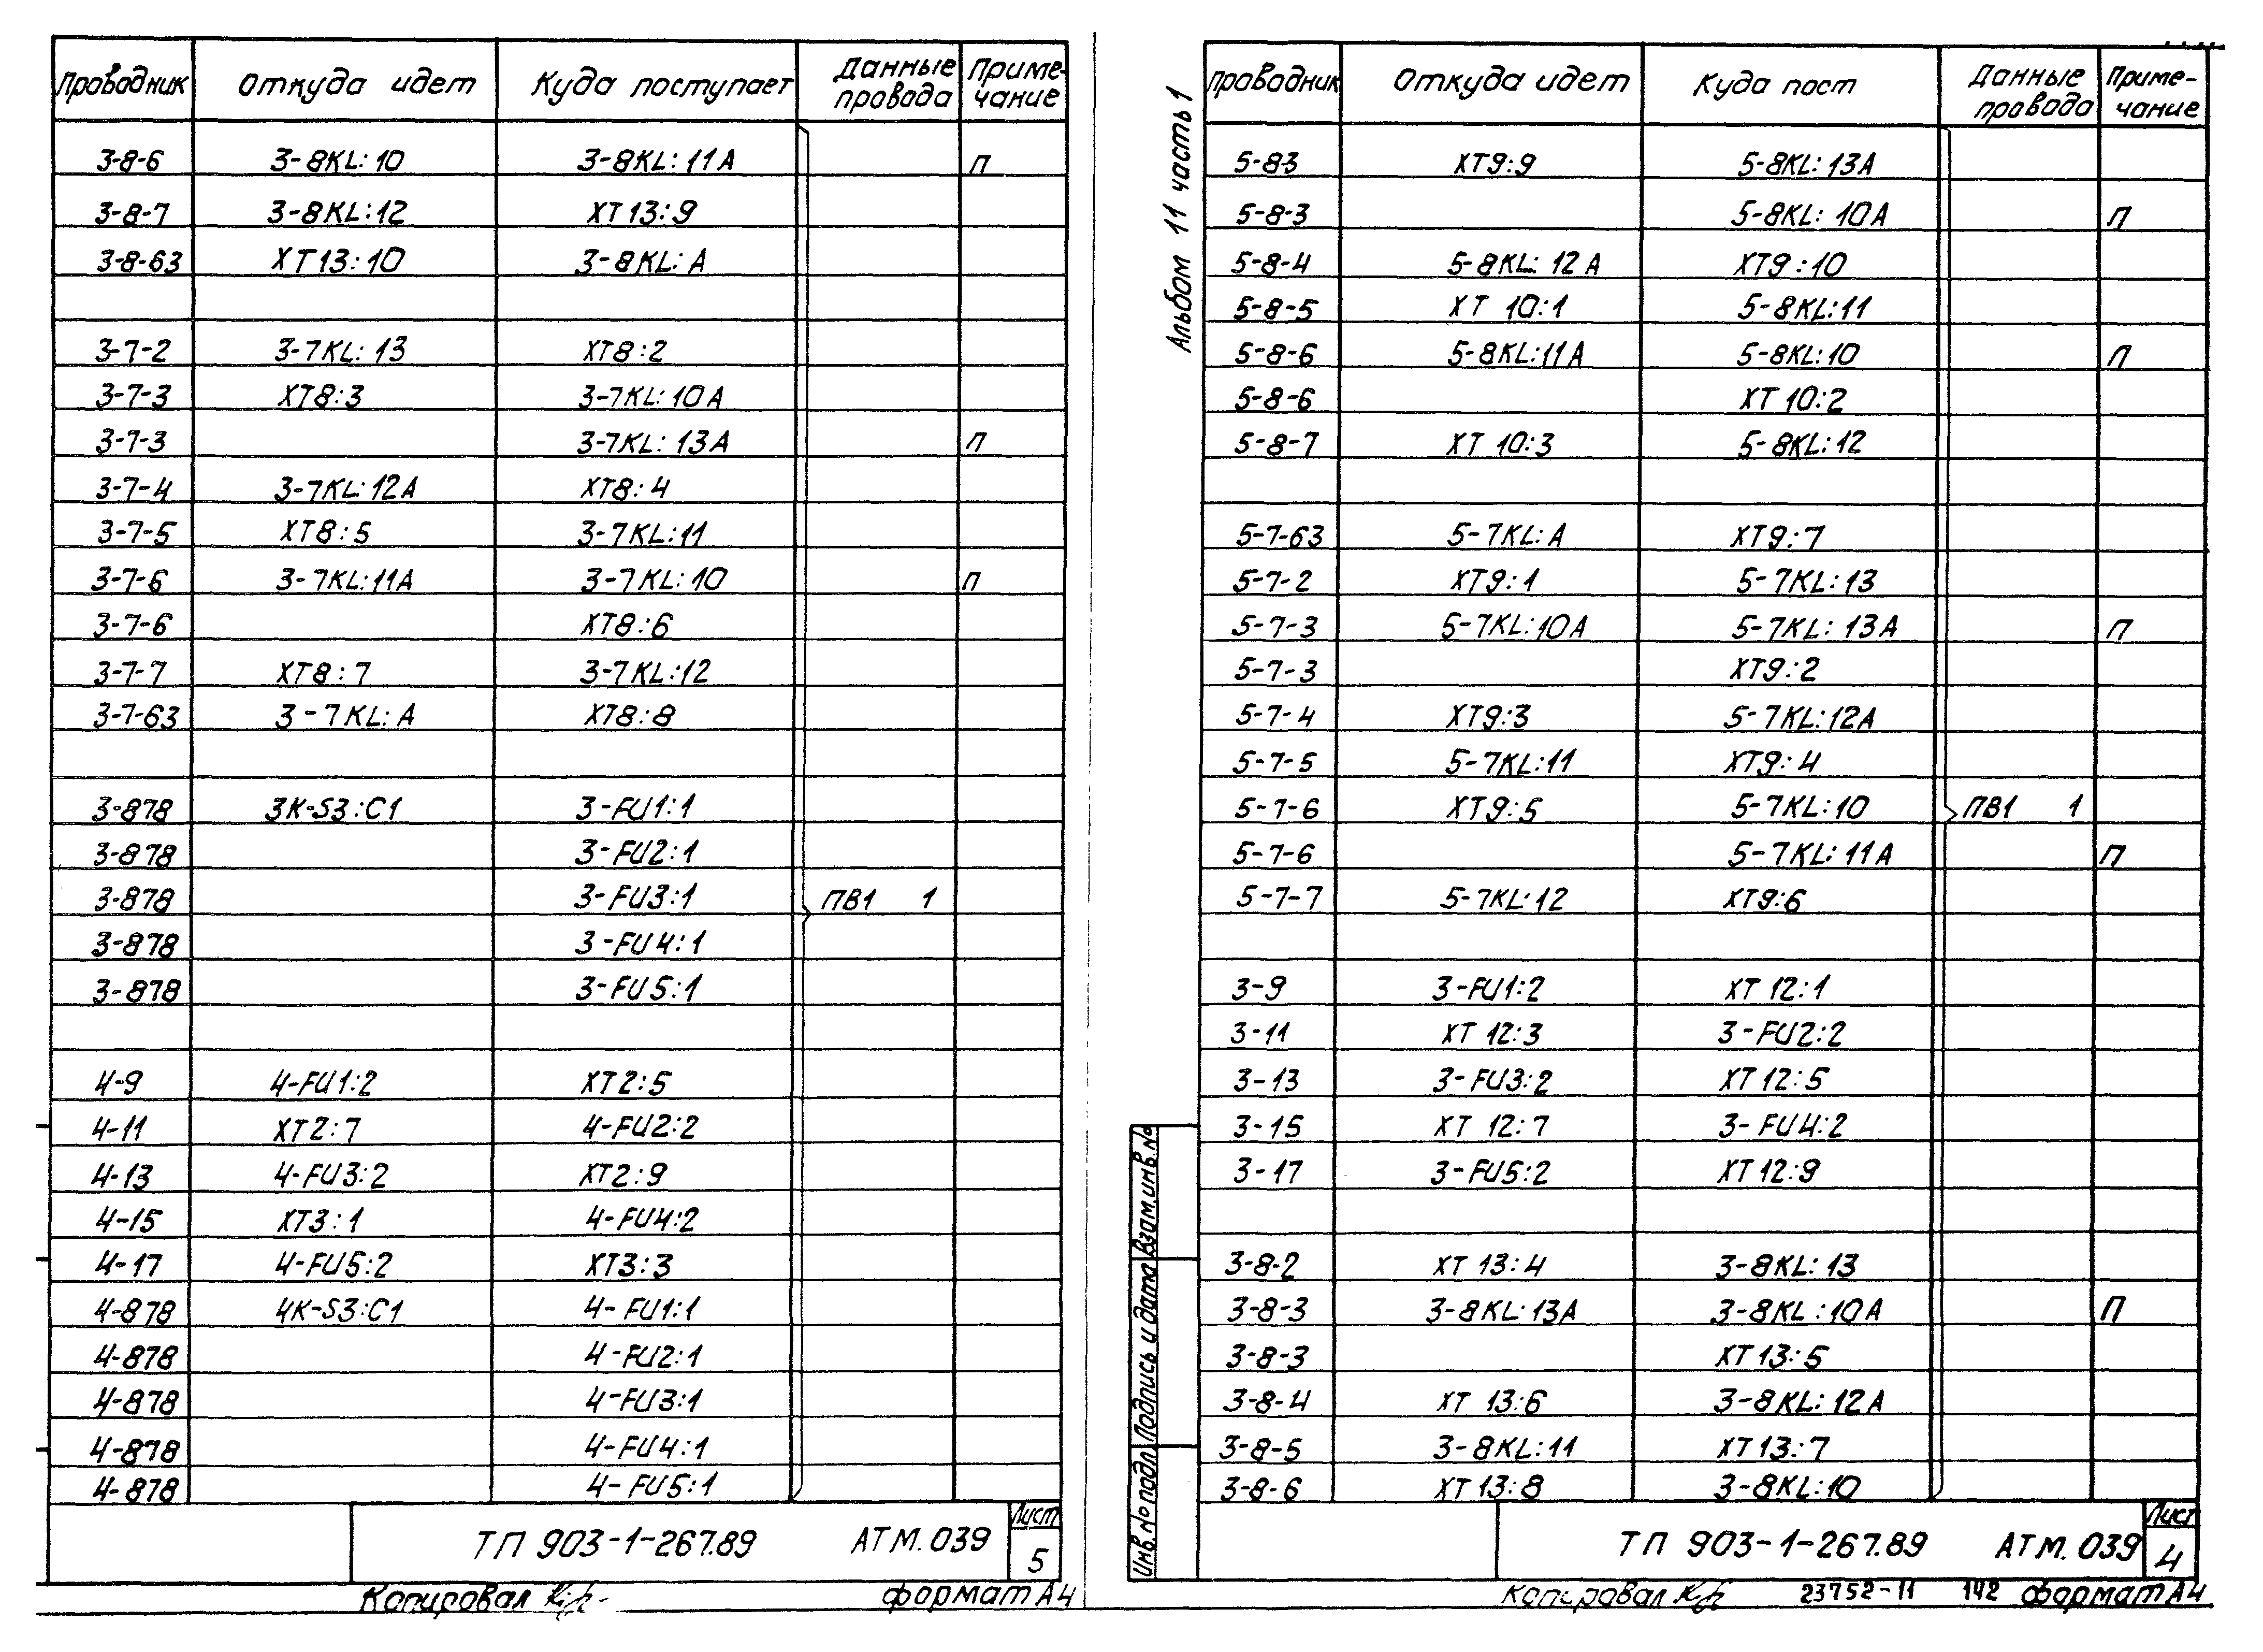 Проводник Откуда идет Куда поступает Данные провода Примечание
3-8-6 3-8KL:10 3-8KL:11А П
3-8-7 3-8KL:12 ХТ13:9
3-8-63 ХТ13:10 3-8KL:А
3-7-2 3-7KL:13 ХТ8:2
3-7-3 ХТ8:3 3-7KL:10А
3-7-3 3-7KL:13А П
3-7-4 3-7KL:12А ХТ8:4
3-7-5 ХТ8:5 3-7KL:11
3-7-6 3-7KL:11А 3-7KL:10 П
3-7-6 ХТ8:6
3-7-7 ХТ8:7 3-7KL:12
3-7-63 3-7KL:А ХТ8:8
3-878 3К-S3:С1 3-FU1:1
3-878 3-FU2:1
3-878 3-FU3:1 ПВ1 1
3-878 3-FU4:1
3-878 3-FU5:1
4-9 4-FU1:2 ХТ2:5
4-11 ХТ2:7 4-FU2:2
4-13 4-FU3:2 ХТ2:9
4-15 ХТ3:1 4-FU4:2
4-17 4-FU5:2 ХТ3:3
4-878 4К-S3:С1 4-FU1:1
4-878 4-FU2:1
4-878 4-FU3:1
4-878 4-FU4:1
4-878 4-FU5:1
ТП 903-1-267.89 АТМ.039 Лист 5
Копировал Формат А4
Альбом 11 часть 1
Проводник Откуда идет Куда пост Данные провода Примечание
5-83 ХТ9:9 5-8KL:13А
5-8-3 5-8KL:10А П
5-8-4 5-8KL:12А ХТ9:10
5-8-5 ХТ 10:1 5-8KL:11
5-8-6 5-8KL:11А 5-8KL:10 П
5-8-6 ХТ 10:2
5-8-7 ХТ 10:3 5-8KL:12
5-7-63 5-7KL:А ХТ9:7
5-7-2 ХТ9:1 5-7KL:13
5-7-3 5-7KL:10А 5-7KL:13А П
5-7-3 ХТ9:2
5-7-4 ХТ9:3 5-7KL:12А
5-7-5 5-7KL:11 ХТ9:4
5-7-6 ХТ9:5 5-7KL:10 ПВ1 1
5-7-6 5-7KL:11А П
5-7-7 5-7KL:12 ХТ9:6
3-9 3-FU1:2 ХТ 12:1
3-11 ХТ 12:3 3-FU2:2
3-13 3-FU3:2 ХТ 12:5
3-15 ХТ 12:7 3-FU4:2
3-17 3-FU5:2 ХТ 12:9
3-8-2 ХТ 13:4 3-8KL:13
3-8-3 3-8KL:13А 3-8KL:10А П
3-8-3 ХТ 13:5
3-8-4 ХТ 13:6 3-8KL:12А
3-8-5 3-8KL:11 ХТ 13:7
3-8-6 ХТ 13:8 3-8KL:10
Инв.№ подл. Подпись и дата Взам.инв.№
ТП 903-1-267.89 АТМ.039 Лист 4
Копировал 23752-11 142 Формат А4